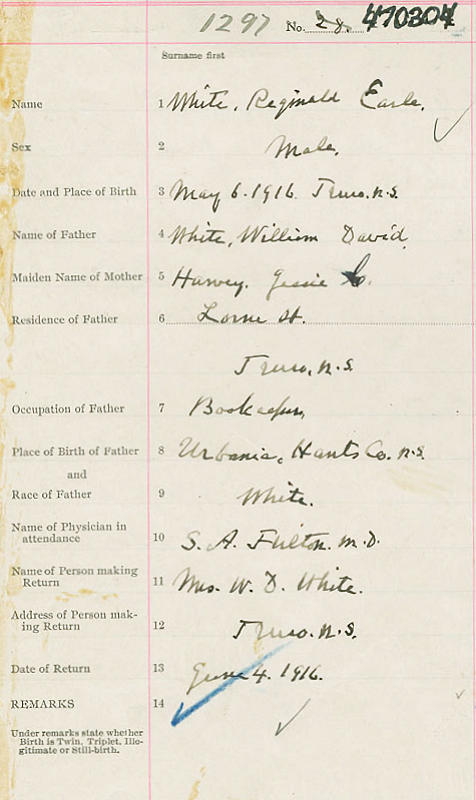 1297 No. 28. 470304
Surname first
Name 1 White, Reginald Earle.
Sex 2 Male.
Date and Place of Birth 3 May 6. 1916. Truro. N.S.
Name of Father 4 White, William David.
Maiden Name of Mother 5 Harvey. Jessie
Residence of Father 6 Lorne St.
Truro, N.S.
Occupation of Father 7 Bookeeper,
Place of Birth of Father 8 Urbania, Hants Co. N.S.
and
Race of Father 9 White.
Name of Physician in
attendance 10 S. A. Fulton. M.D.
Name of Person making
Return 11 Mrs. W. D. White.
Address of Person mak-
ing Return 12 Truro. N.S.
Date of Return 13 June 4. 1916.
REMARKS 14
Under remarks state whether
Birth is Twin, Triplet, Ille-
gitimate or Still-birth.